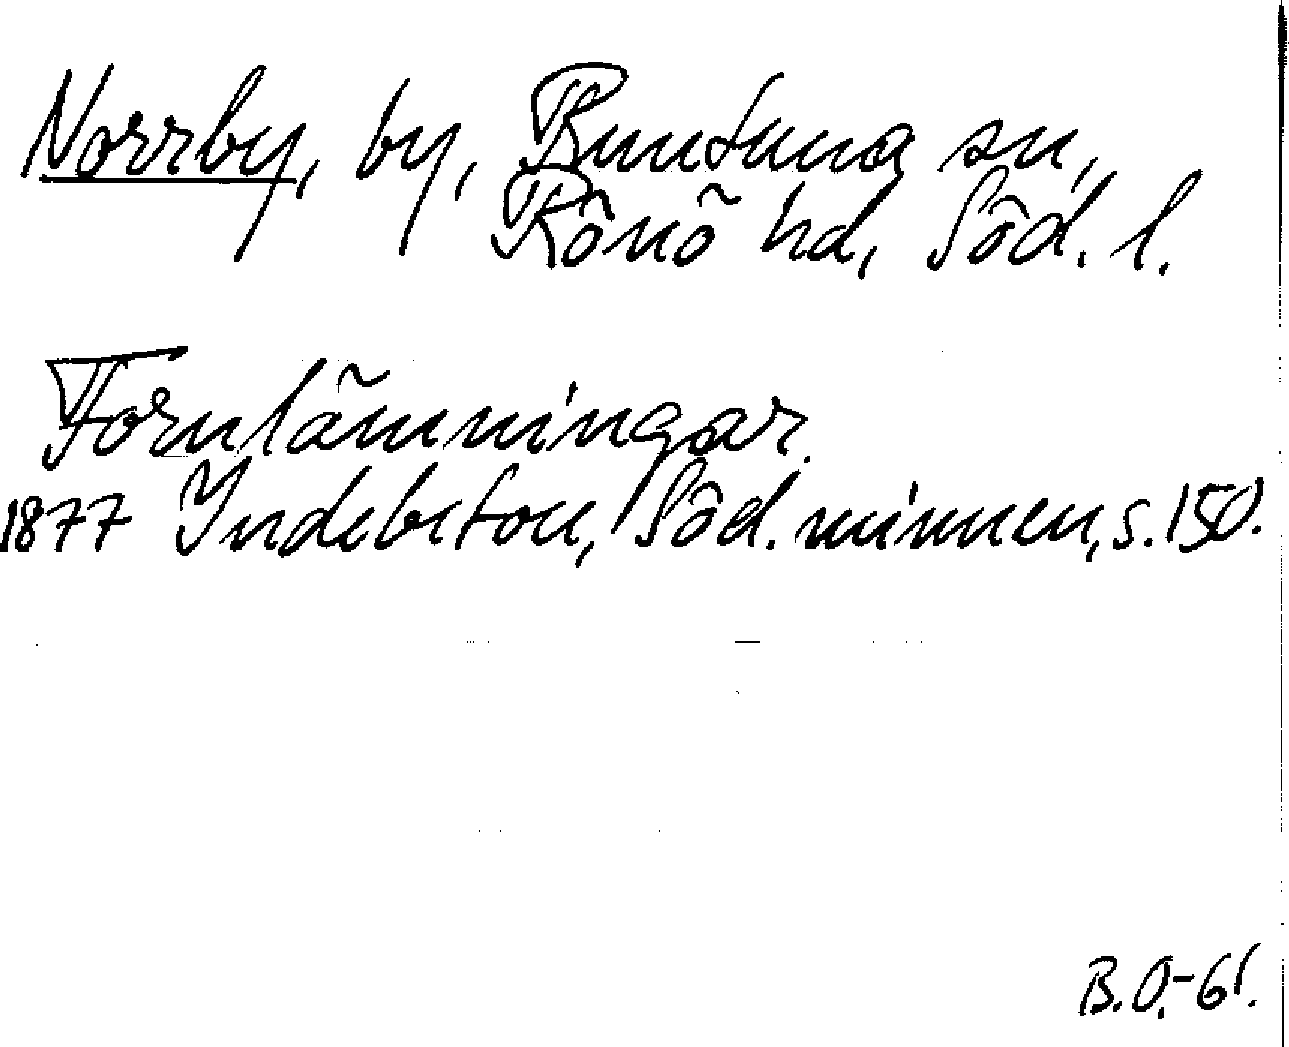 Norrby, by, Runtuna sn,
Rönö hd, Söd. l.
Fornlämningar.
1877 Indebetou, Söd. minnen, s. 150.
B.O.-61.